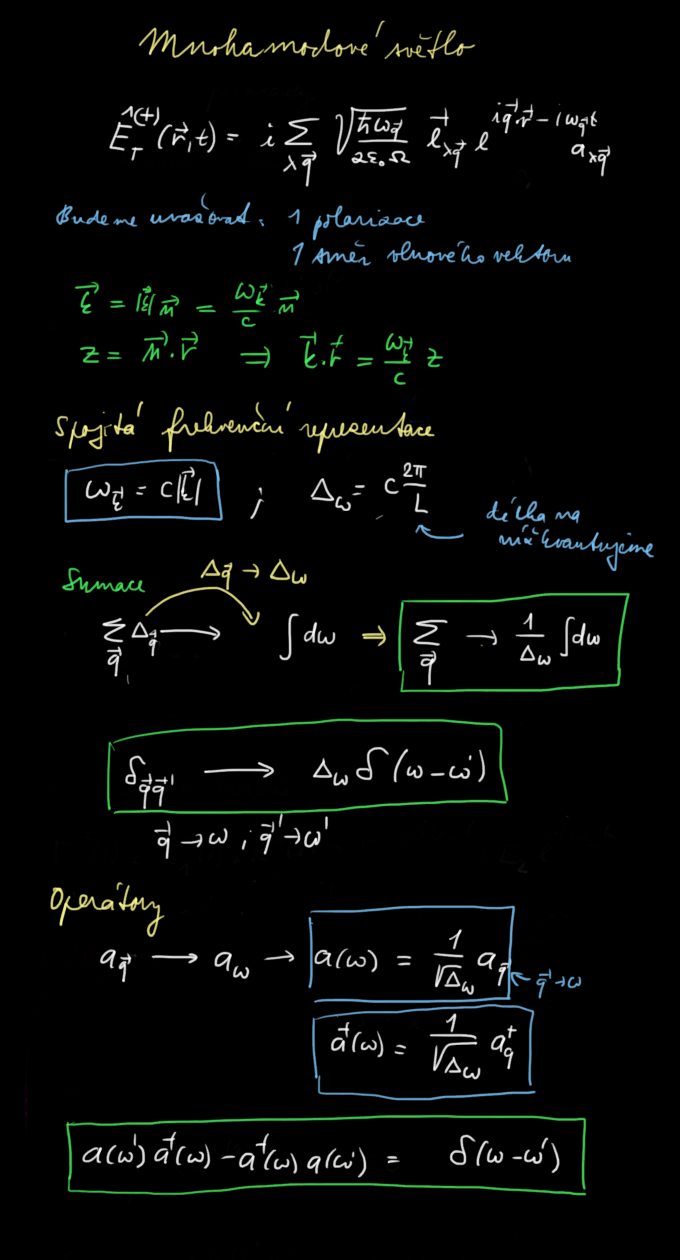 Mnohamodové světlo
Ê_T^(+)(r⃗,t) = i ∑_{λq⃗} √(ħω_q⃗ / 2ε₀Ω) e⃗_{λq⃗} e^{iq⃗·r⃗ - iω_q⃗ t} a_{λq⃗}
Budeme uvažovat: 1 polarizace
1 směr vlnového vektoru
k⃗ = |k⃗| n⃗ = ω_k⃗/c n⃗
z = n⃗·r⃗ ⟹ k⃗·r⃗ = ω_k⃗/c z
Spojitá frekvenční representace
ω_k⃗ = c|k⃗| ; Δ_ω = c 2π/L
délka na
níž kvantujeme
Sumace
Δq⃗ → Δω
∑_q⃗ Δ_q⃗ ⟶ ∫dω ⟹ ∑_q⃗ → 1/Δ_ω ∫dω
δ_{q⃗q⃗'} ⟶ Δ_ω δ(ω-ω')
q⃗ → ω ; q⃗' → ω'
Operátory
a_q⃗ ⟶ a_ω → a(ω) = 1/√Δ_ω a_q⃗ ← q⃗→ω
a†(ω) = 1/√Δ_ω a†_q
a(ω') a†(ω) - a†(ω) a(ω') = δ(ω-ω')